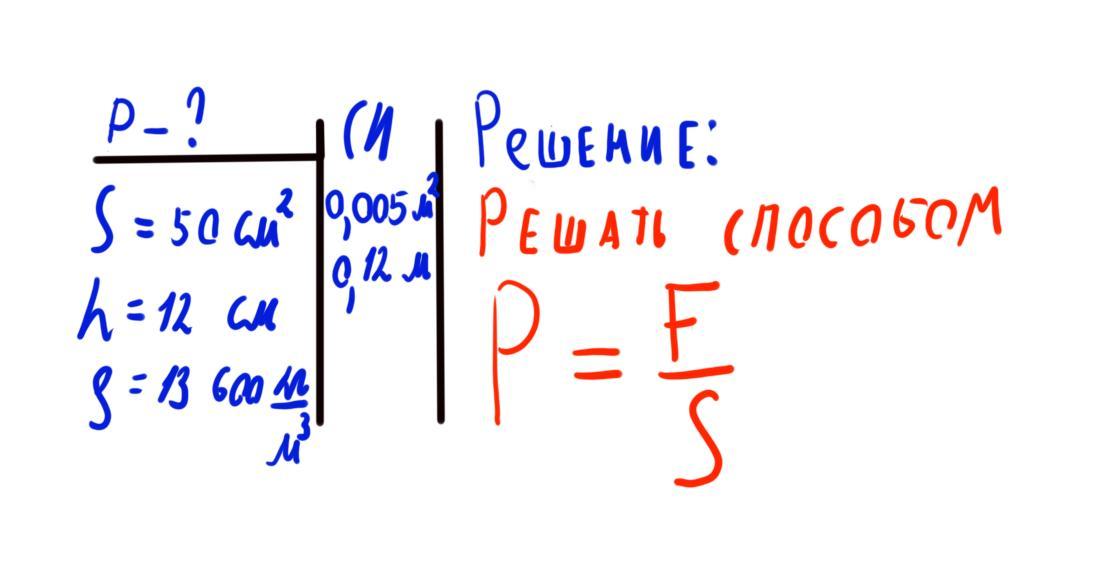 P - ?
S = 50 см²
h = 12 см
ρ = 13 600 кг/м³
СИ
0,005 м²
0,12 м
Решение:
Решать способом
P = F/S